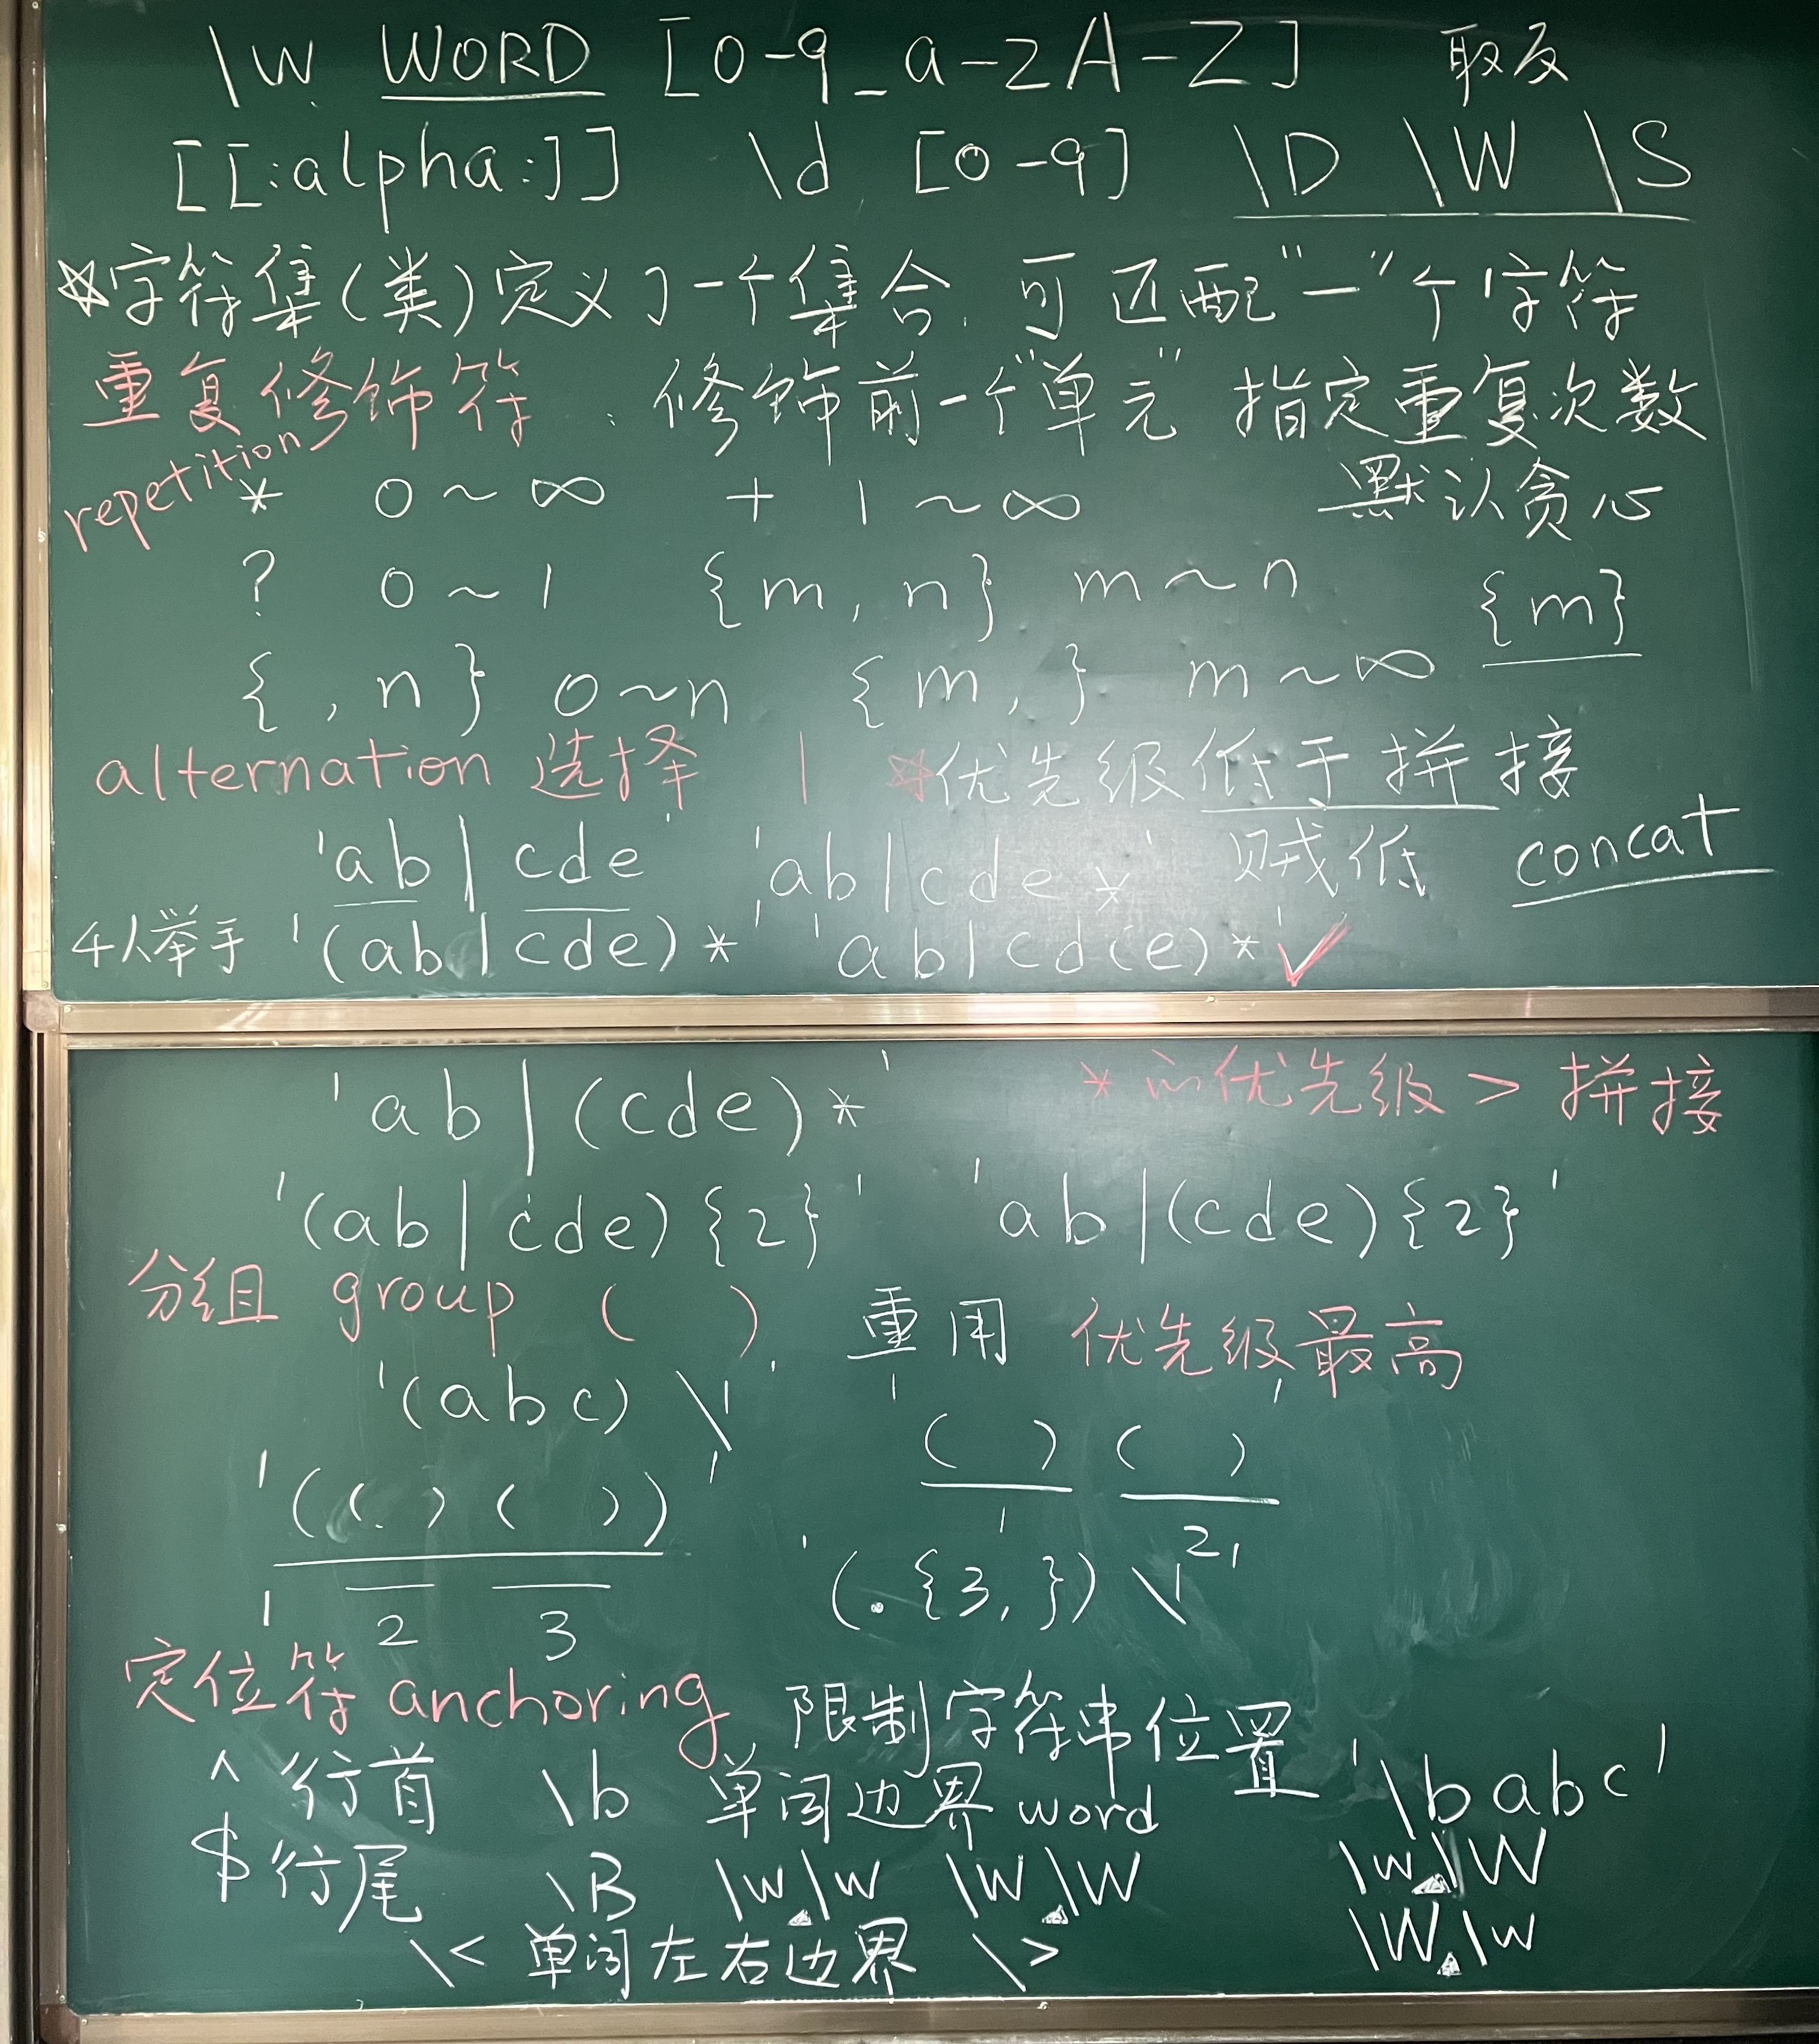 \w WORD [0-9_a-zA-Z] 取反
[[:alpha:]] \d [0-9] \D \W \S
☆字符集(类)定义了一个集合,可匹配"一"个字符
重复修饰符: 修饰前一个"单元" 指定重复次数
repetition * 0~∞ + 1~∞ 默认贪心
? 0~1 {m,n} m~n {m}
{,n} 0~n {m,} m~∞
alternation 选择 | ☆优先级低于拼接
'ab|cde' 'ab|cde*' 贼低 concat
4人举手 '(ab|cde)*' 'ab|cd(e)*' ✓
'ab|(cde)*' *的优先级 > 拼接
'(ab|cde){2}' 'ab|(cde){2}'
分组 group ( ) 重用 优先级最高
'(abc)\1' '( ) ( )'
'(( ) ( ))' 1 2
1 2 3 '(.{3,})\1'
定位符 anchoring 限制字符串位置
^ 行首 \b 单词边界 word '\babc'
$ 行尾 \B \w\w \W\W \w\W
\< 单词左右边界 \> \W\w